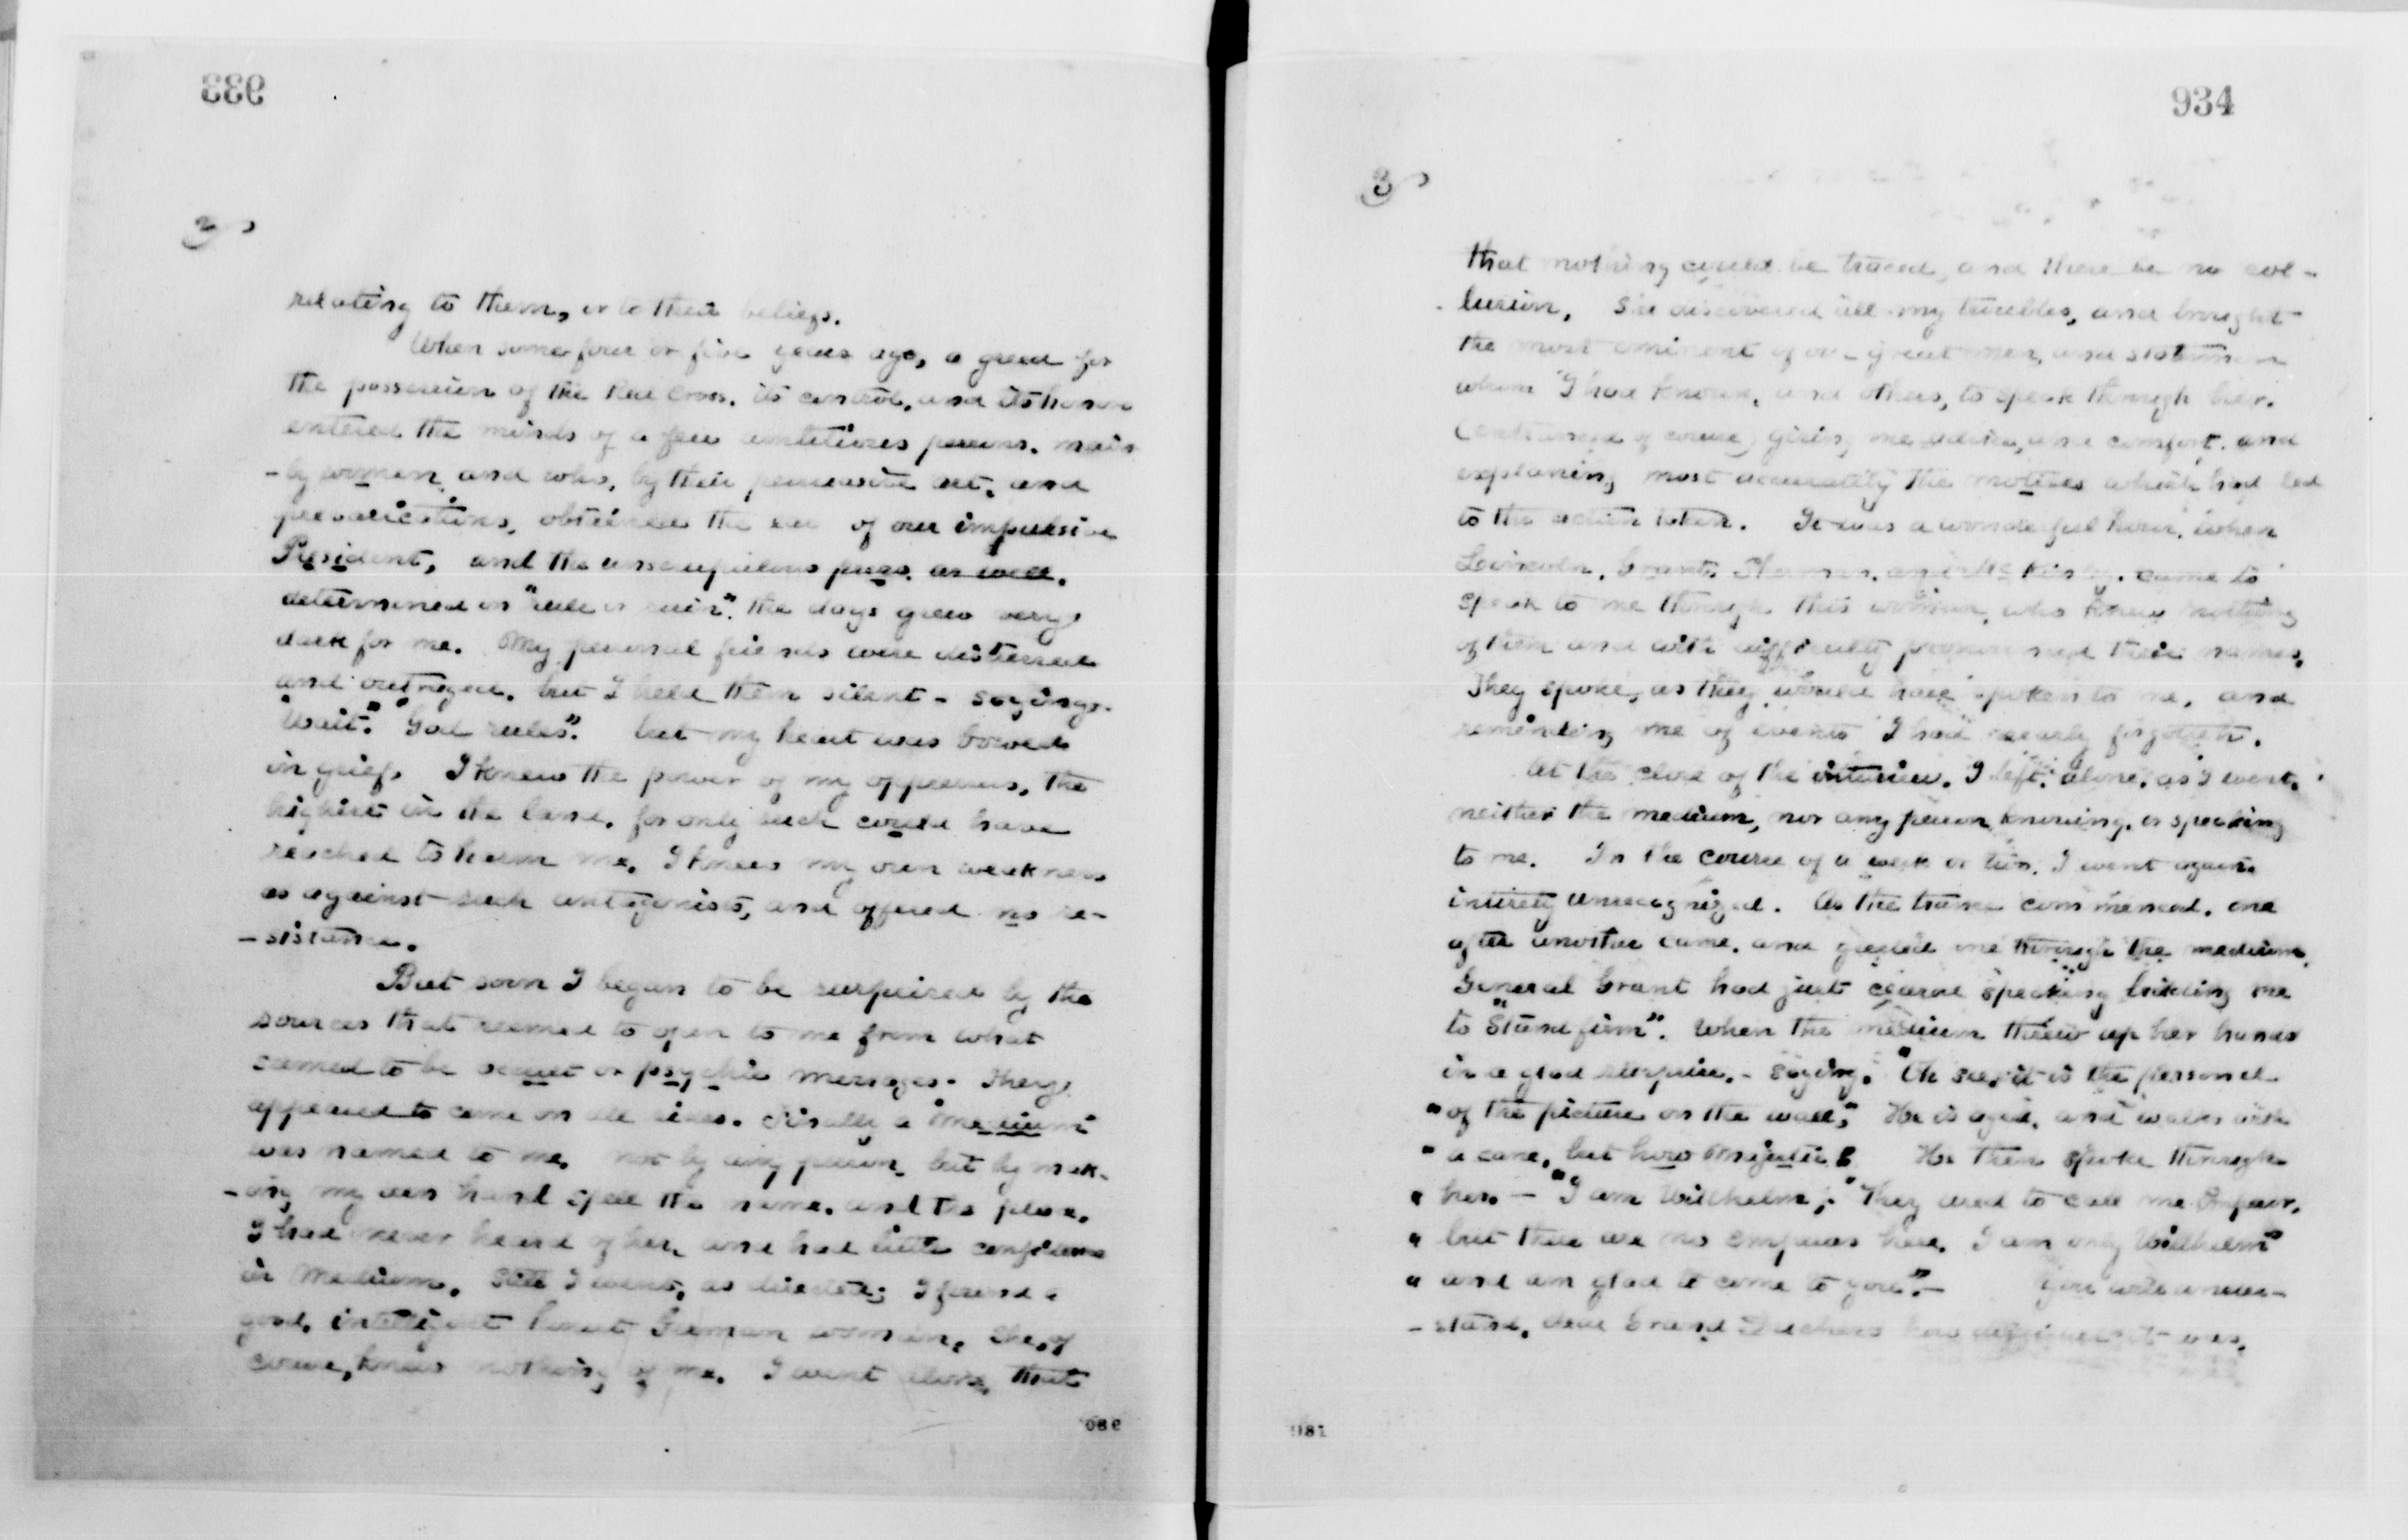 933
2
relating to them, or to their beliefs.
When some four or five years ago, a greed for
the possession of the Red Cross, its control, and its honors
entered the minds of a few ambitious persons, main
-ly women, and who, by their persuasive art, and
prevarications, obtained the ear of our impulsive
President, and the unscrupulous press, as well,
determined on "rule or ruin". the days grew very
dark for me. My personal friends were distressed
and outraged, but I held them silent - saying.
"Wait". "God rules". but my heart was bowed
in grief. I knew the power of my oppressors, the
highest in the land, for only such could have
reached to harm me. I knew my own weakness
as against such antagonists, and offered no re-
-sistance.
But soon I began to be surprised by the
sources that seemed to open to me from what
seemed to be occult or psychic messages. They
appeared to come on all sides. Finally a "medium"
was named to me, not by any person, but by mak-
-ing my own hand spell the name, and the place.
I had never heard of her, and had little confidence
in Mediums. Still I went, as directed; I found a
good, intelligent honest German woman. She, of
course, knew nothing of me. I went alone, that
980
934
3
that nothing could be traced, and there be no col-
lusion. She discovered all my troubles, and brought
the most eminent of our great men, and statesmen
whom I had known, and others, to speak through her.
(entranced of course) giving me advice, and comfort, and
explaining most accurately the motives which had led
to the action taken. It was a wonderful hour, when
Lincoln, Grant, Sherman, and McKinley, came to
speak to me through this woman, who knew nothing
of them and with difficulty pronounced their names.
They spoke, as they would have spoken to me, and
reminding me of events I had nearly forgotten.
At the close of the interview, I left, alone, as I went,
neither the medium, nor any person knowing, or speaking
to me. In the course of a week or two, I went again
intirely unrecognized. As the trance commenced, one
after another came, and greeted me through the medium.
General Grant had just ceased speaking bidding me
to "Stand firm". When the medium threw up her hands
in a glad surprise, - saying: "Oh see, it is the personel
" of the picture on the wall," He is aged, and walks with
" a cane, but how majestic! He then spoke through
" her. - "I am Wilhelm;" "They used to call me Emperor,
" but there are no emperors here. I am only Wilhelm
" and am glad to come to you". - You will under-
-stand, dear Grand Duchess how difficult it was,
981